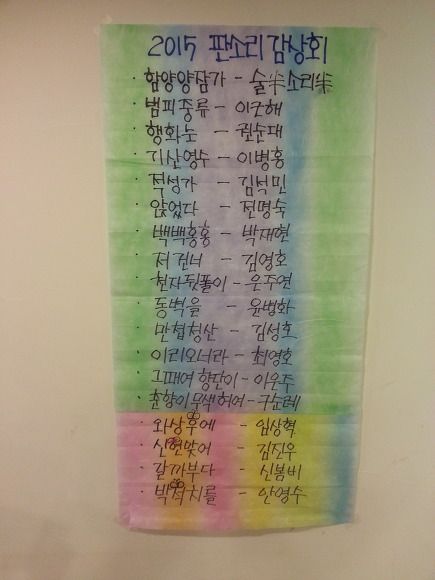 2015 판소리감상회
· 함양양잠가 - 술米소리米
· 범피중류 - 이근해
· 행화는 - 권순대
· 기산영수 - 이병홍
· 적성가 - 김석민
· 앉었다 - 전명숙
· 백백홍홍 - 박재현
· 저 건너 - 김영호
· 천자뒷풀이 - 은주연
· 동벽을 - 윤병화
· 만첩청산 - 김성호
· 이리오너라 - 최영호
· 그때여 향단이 - 이우주
· 춘향이 무색허여 - 구순례
· 와상후에 - 임상혁
· 신연맞어 - 김진우
· 갈까부다 - 신봄비
· 박석치를 - 안영수